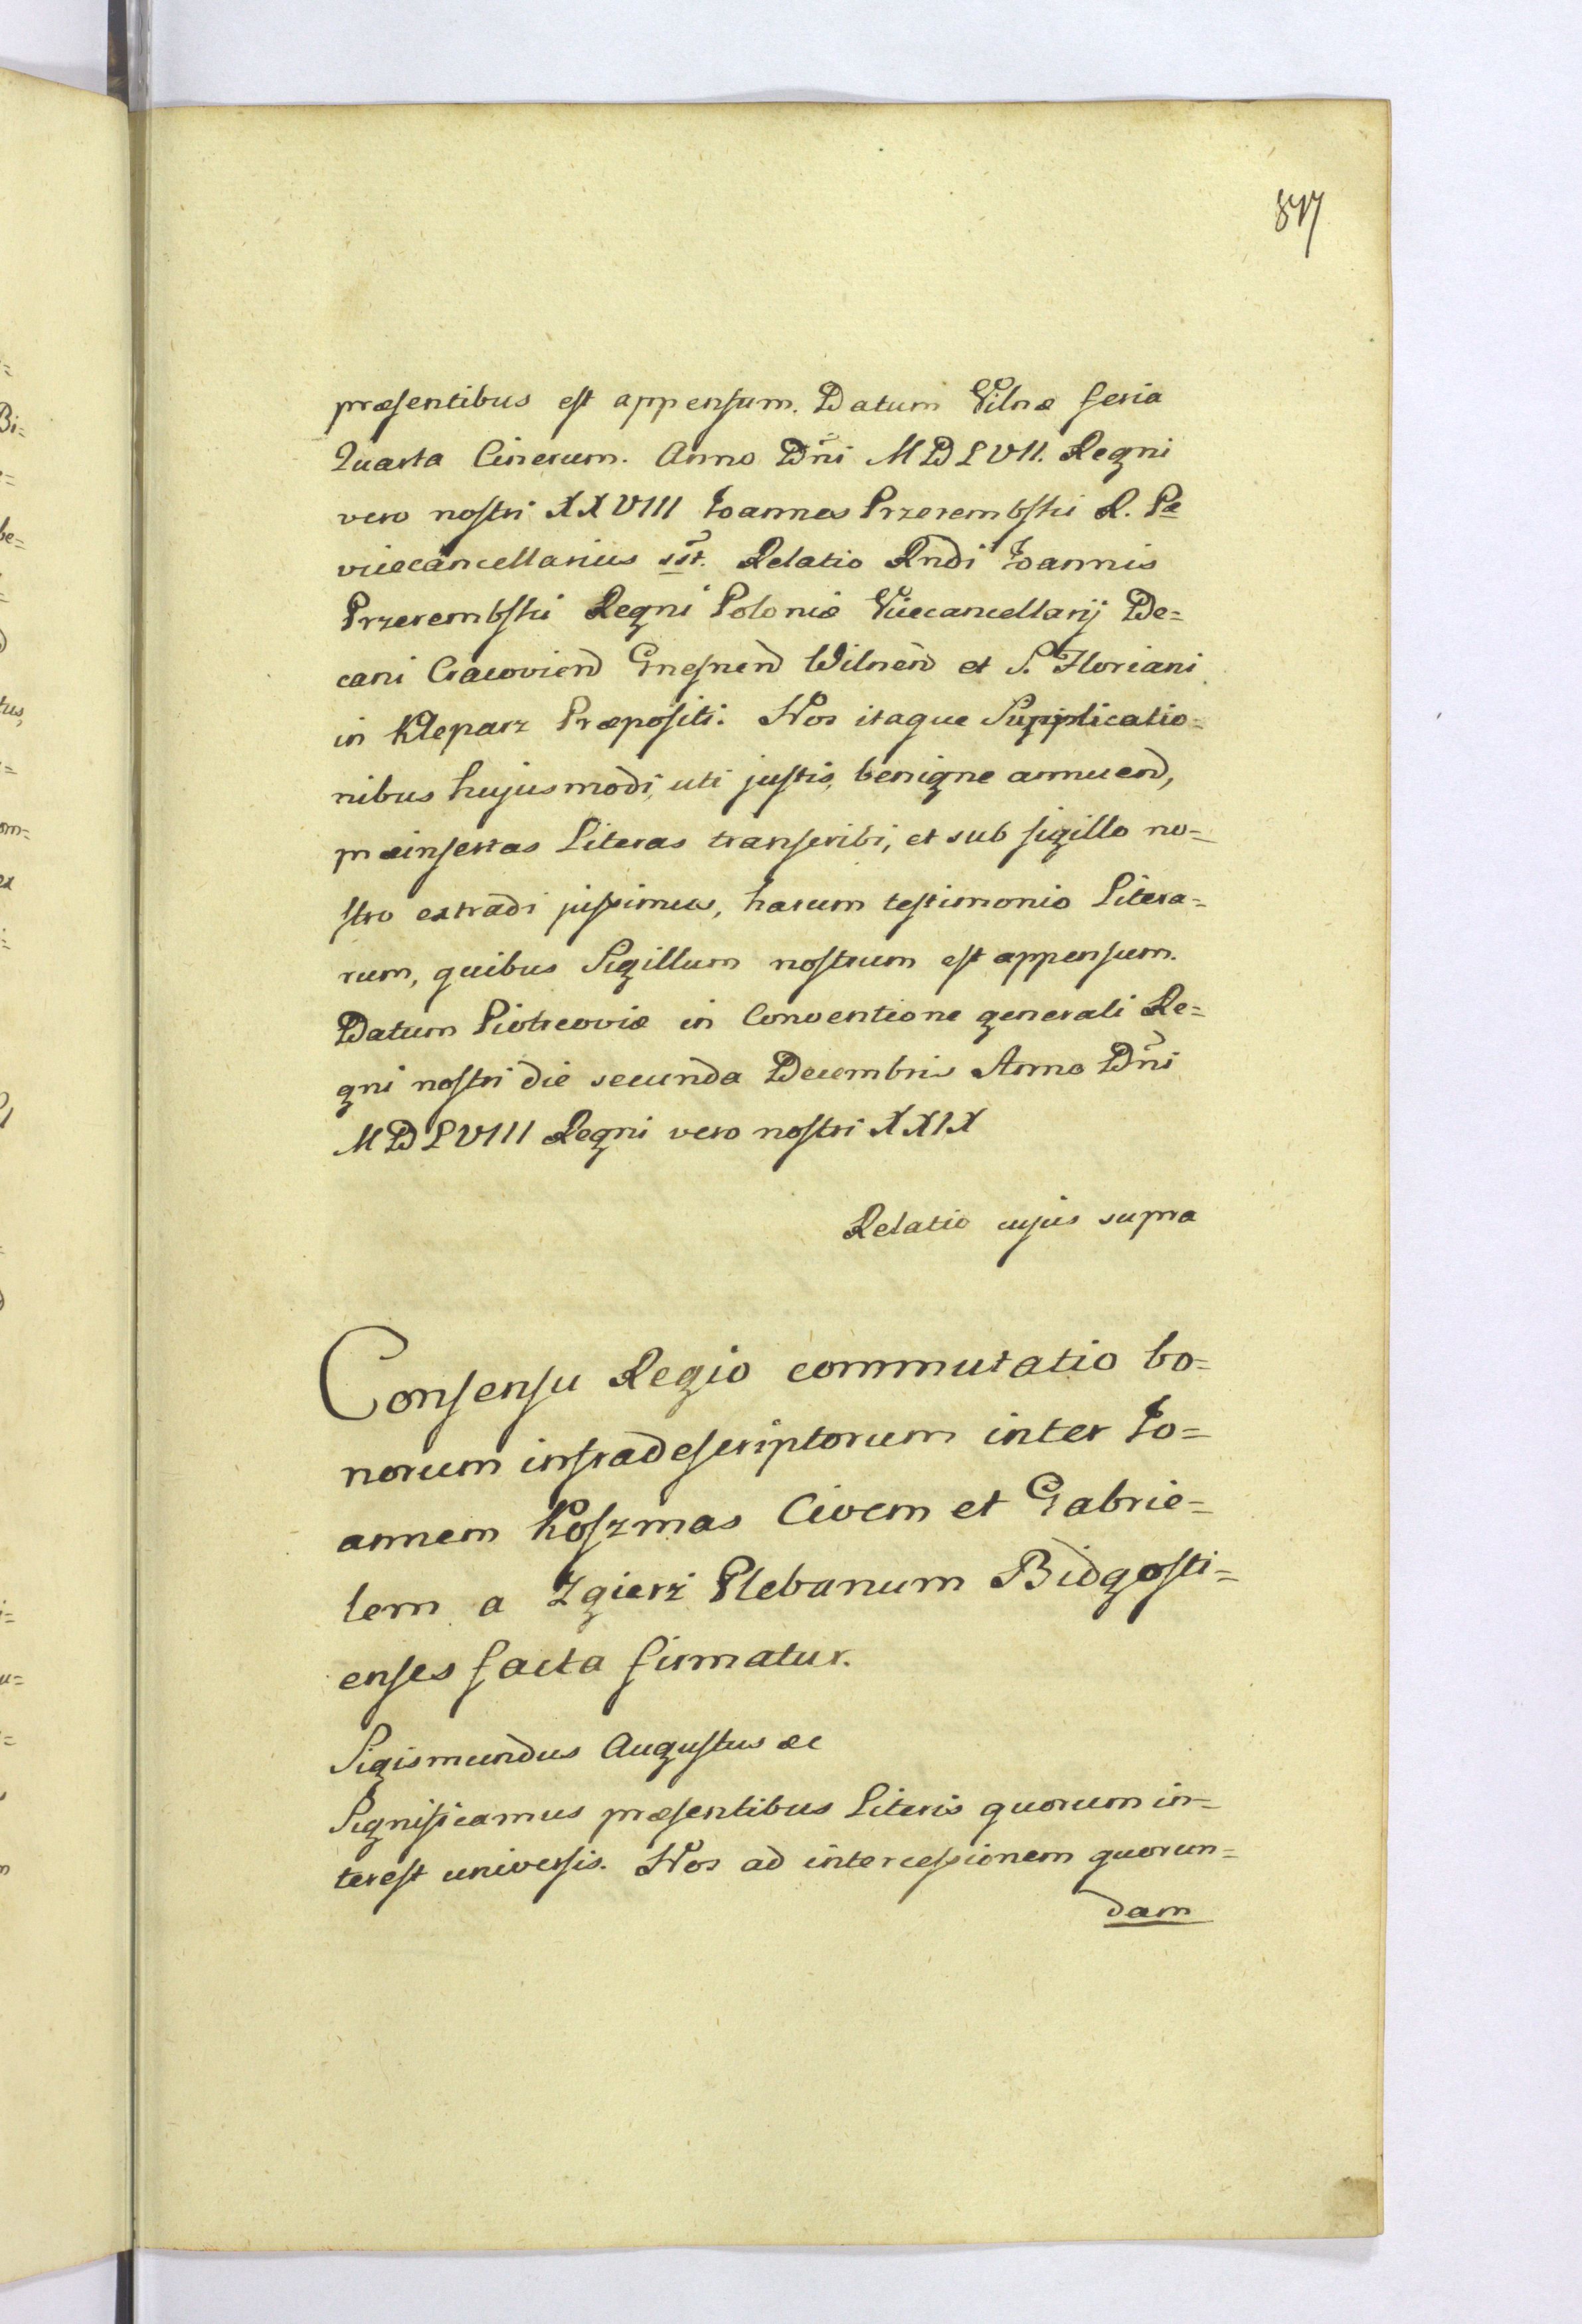 præsentibus est appensum. Datum Vilnæ feria
Quarta Cinerum. Anno Dñi MDLVII. Regni
vero nostri XXVIII Joannes Przerembski R. Pæ
vicecancellarius sst. Relatio Rndi Joannis
Przerembski Regni Poloniæ Vicecancellarij De=
cani Cracovien Gnesnen Wilnen et S. Floriani
in Kleparz Præpositi. Nos itaque Supplicatio=
nibus hujusmodi, uti justis, benigne annuend,
præinsertas Literas transcribi, et sub sigillo no=
stro extradi jussimus, harum testimonio Litera=
rum, quibus Sigillum nostrum est appensum.
Datum Piotrcoviæ in Conventione generali Re=
gni nostri die secunda Decembris Anno Dñi
MDLVIII Regni vero nostri XXIX
Relatio cujus supra
Consensu Regio commutatio bo=
norum infradescriptorum inter Jo=
annem Koszmas Civem et Gabrie=
lem a Zgierz Plebanum Bidgosti=
enses facta firmatur.
Sigismundus Augustus &c
Significamus præsentibus Literis quorum in=
terest universis. Nos ad intercessionem quorun=
dam